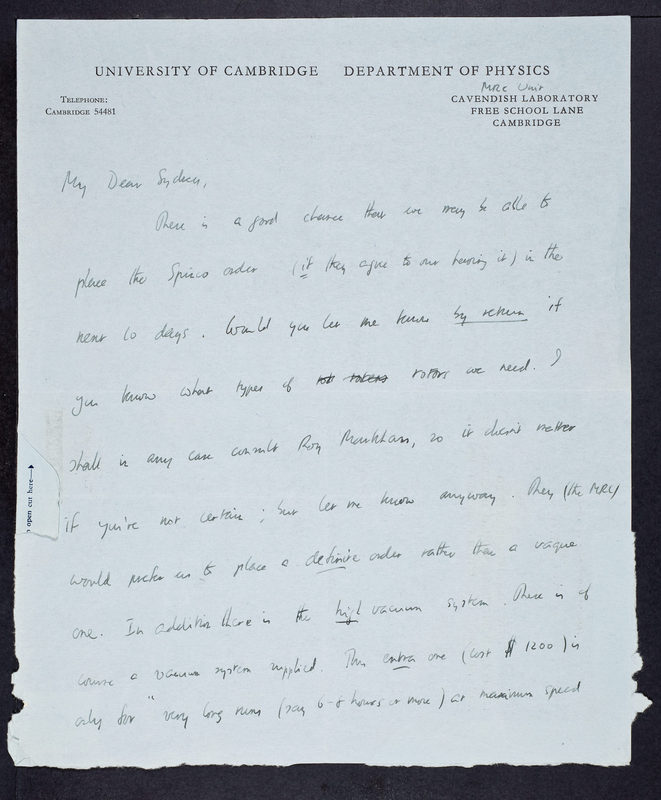 UNIVERSITY OF CAMBRIDGE DEPARTMENT OF PHYSICS
MRC Unit
TELEPHONE:
CAMBRIDGE 54481
CAVENDISH LABORATORY
FREE SCHOOL LANE
CAMBRIDGE
My Dear Sydney,
There is a good chance that we may be able to
place the Spinco order (if they agree to our having it) in the
next 10 days. Would you let me know by return if
you know what types of rotors rotors we need. I
shall in any case consult Roy Markham, so it doesn't matter
if you're not certain; but let me know anyway. They (the MRC)
would prefer us to place a definite order rather than a vague
one. In addition there is the high vacuum system. There is of
course a vacuum system supplied. This extra one (cost $ 1200) is
only for "very long runs (say 6-8 hours or more) at maximum speed
o open cut here→